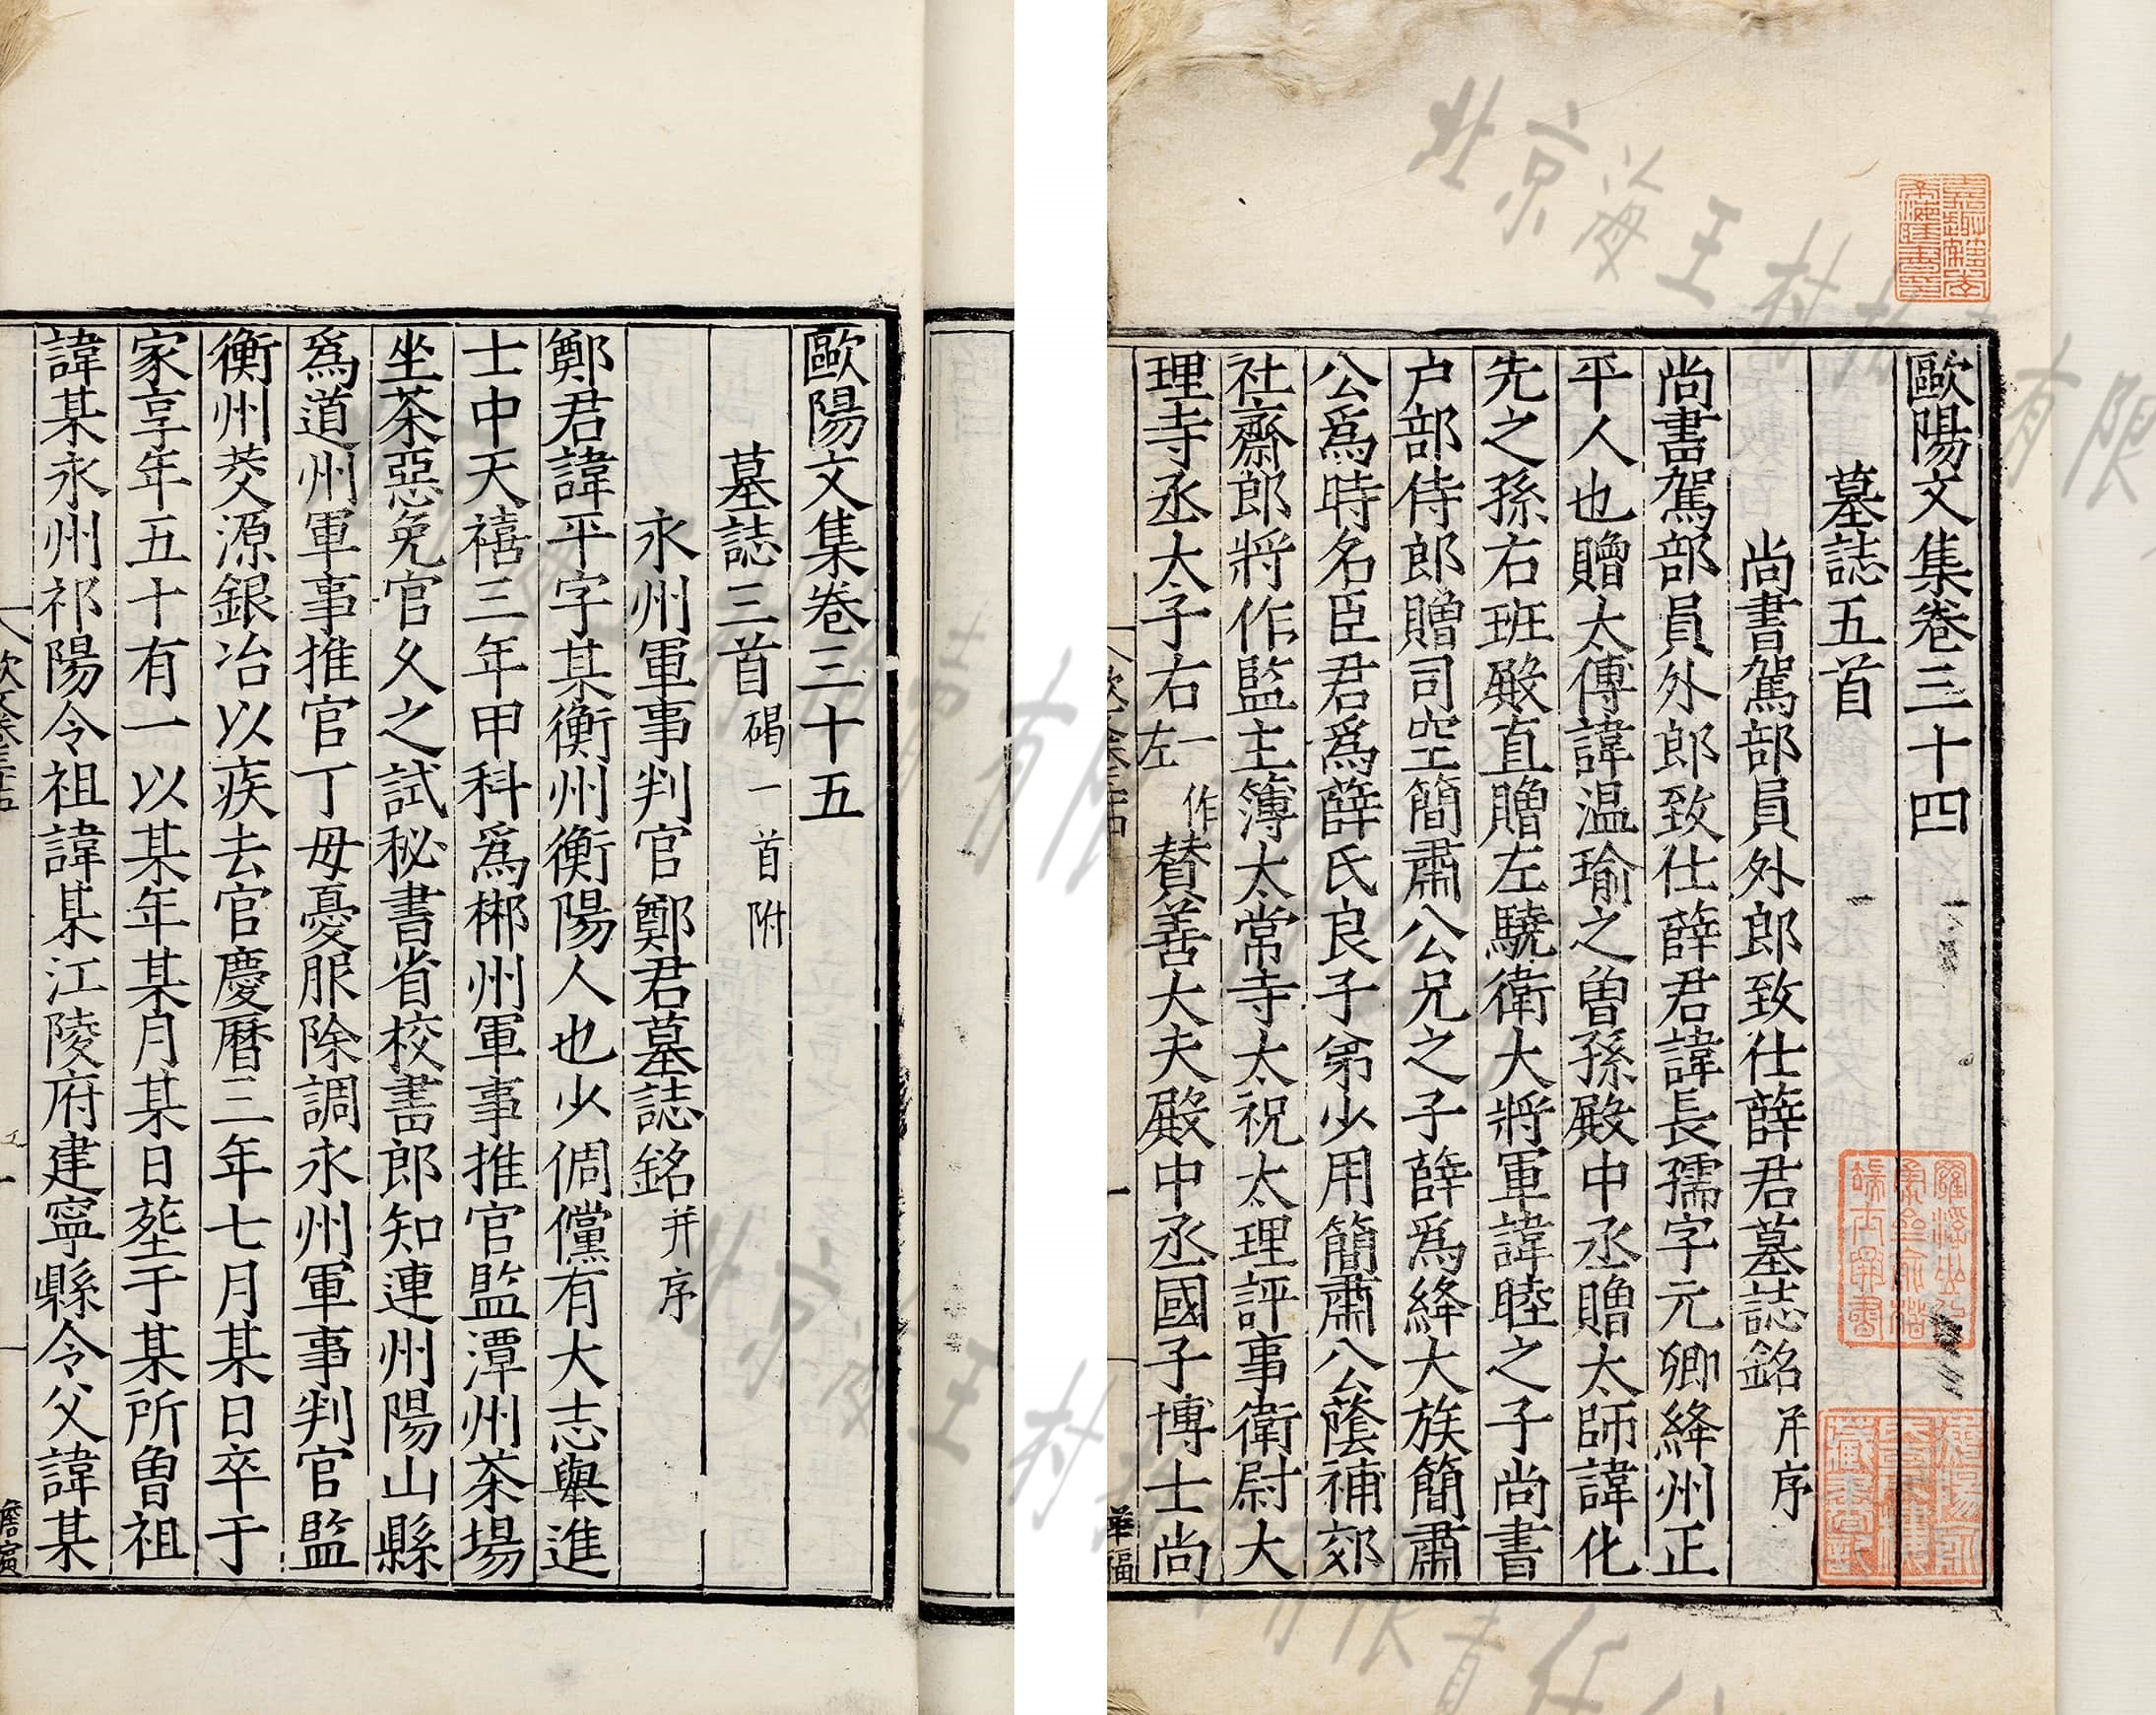 歐陽文集卷三十四
墓誌五首
尚書駕部員外郎致仕薛君墓誌銘并序
尚書駕部員外郎致仕薛君諱長孺字元卿絳州正
平人也贈太傅諱温瑜之曾孫殿中丞贈太師諱化
先之孫右班殿直贈左驍衛大將軍諱睦之子尚書
户部侍郎贈司空簡肅公兄之子薛爲絳大族簡肅
公爲時名臣君爲薛氏良子弟少用簡肅公蔭補郊
社齋郎將作監主簿太常寺太祝太理評事衛尉大
理寺丞大子右一作左賛善大夫殿中丞國子博士尚
歐陽文集卷三十五
墓誌三首碣一首附
永州軍事判官鄭君墓誌銘并序
鄭君諱平字某衡州衡陽人也少倜儻有大志舉進
士中天禧三年甲科爲郴州軍事推官監潭州茶場
坐茶惡免官久之試秘書省校書郎知連州陽山縣
爲道州軍事推官丁母憂服除調永州軍事判官監
衡州茭源銀冶以疾去官慶曆三年七月某日卒于
家享年五十有一以某年某月某日塟于某所曾祖
諱某永州祁陽令祖諱某江陵府建寧縣令父諱某
北京海王村拍有限